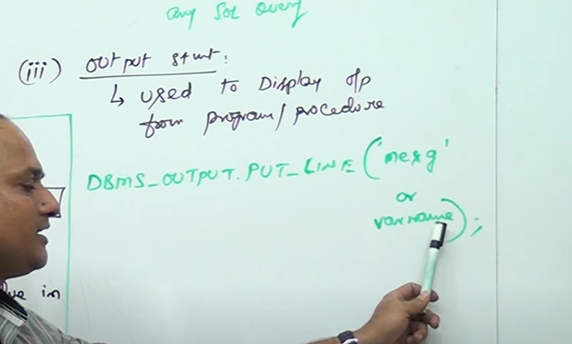 any SQL Query
(iii) output stmt:
↳ used to Display o/p
from program/procedure
DBMS_OUTPUT.PUT_LINE('mesg'
or
varname);
ve in